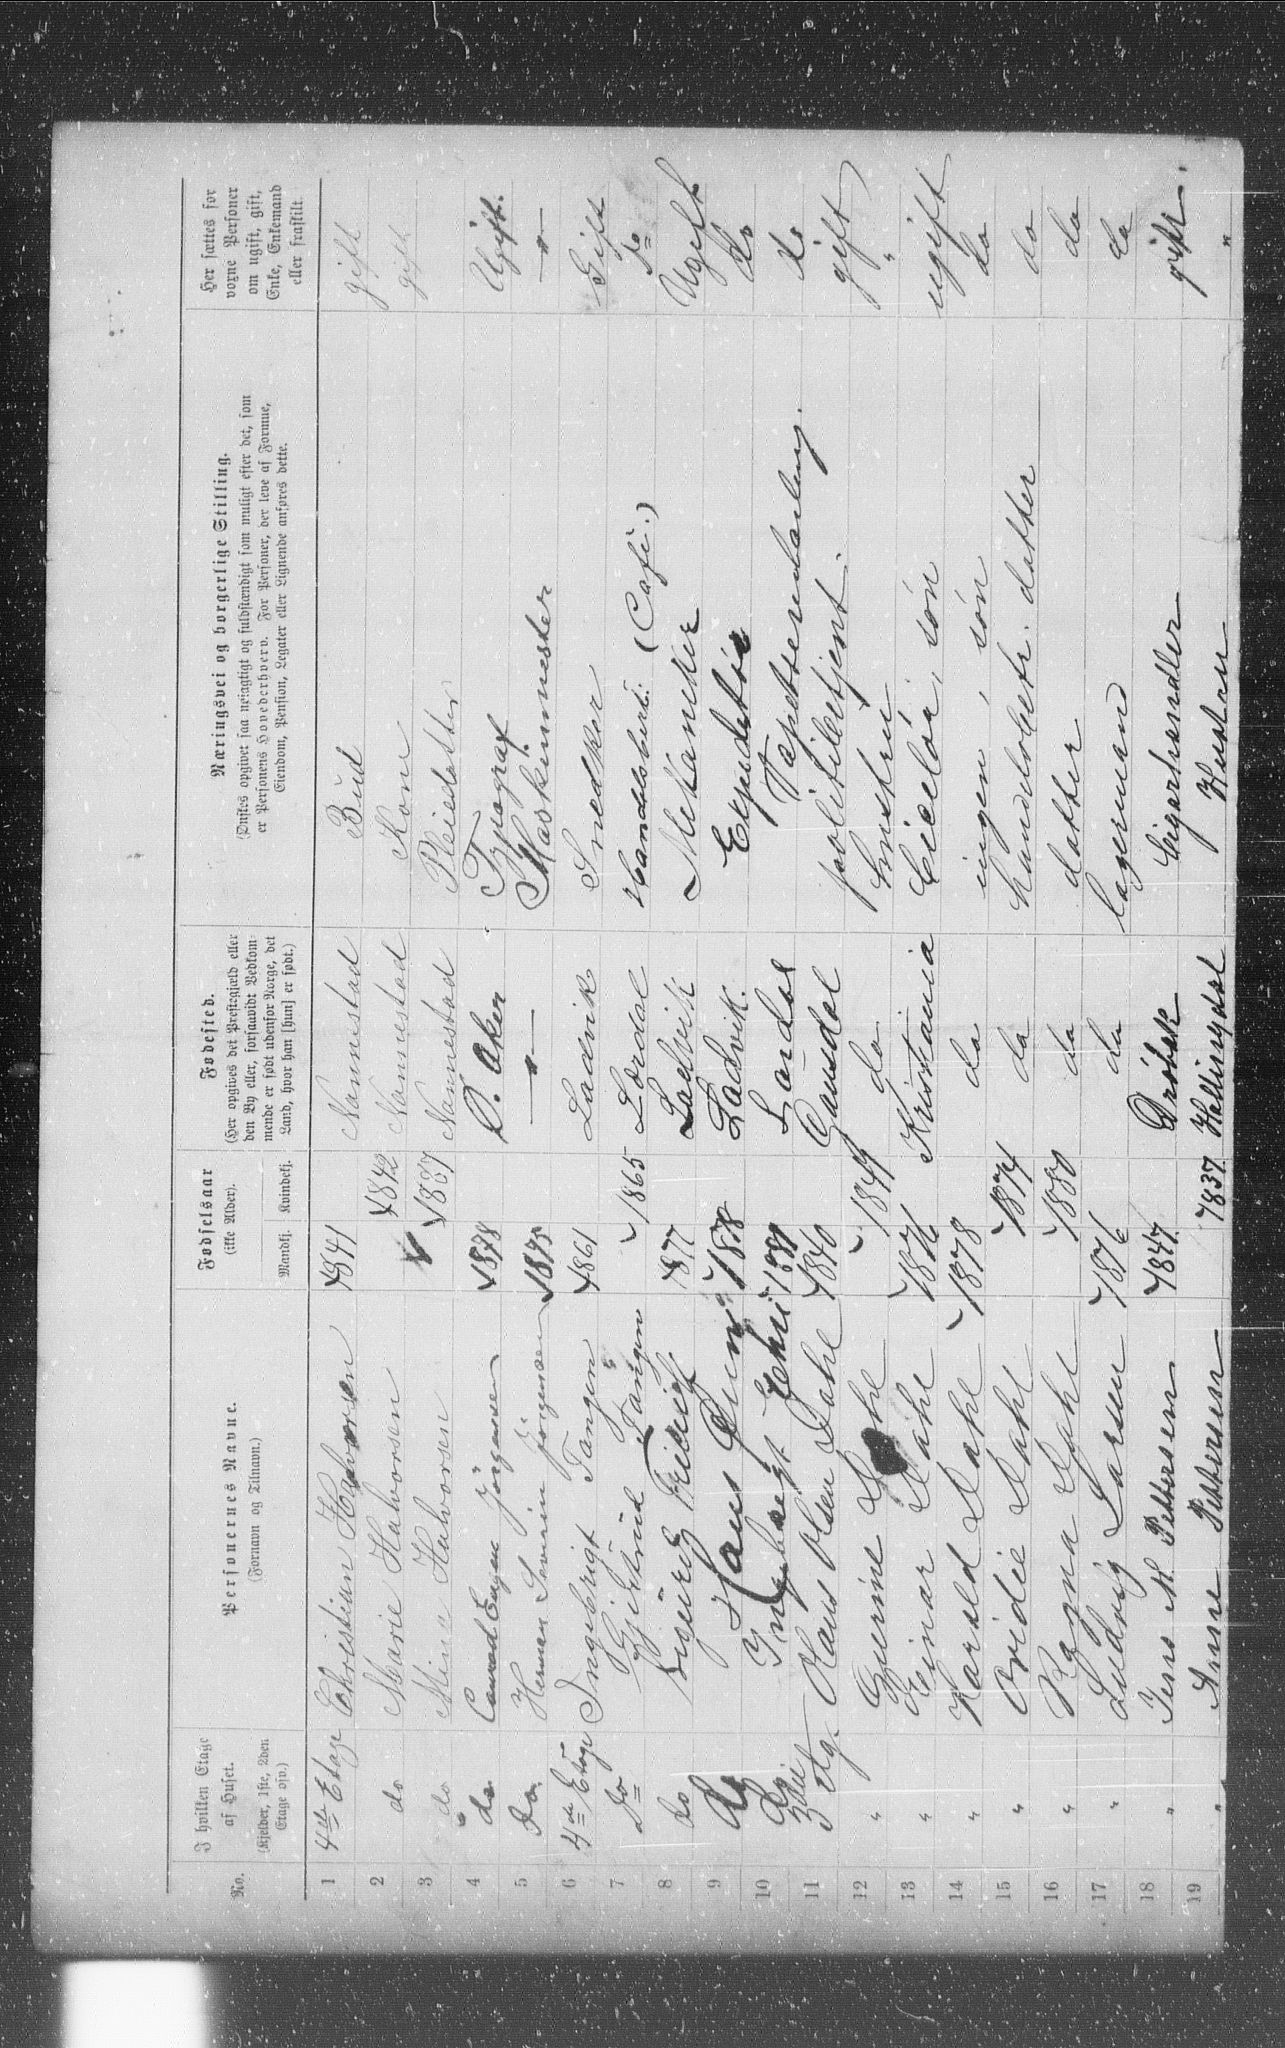 No.
I hvilken Etage
af Huset.
(Kjelder, 1ste, 2den
Etage osv.)
Personernes Navne.
(Fornavn og Tilnavn.)
Fødselsaar
(ikke Alder).
Mandkj. Kvindekj.
Fødested.
(Her opgives det Præstegjeld eller
den By eller, forsaavidt Vedkom-
mende er født udenfor Norge, det
Land, hvor han [hun] er født.)
Næringsvei og borgerlige Stilling.
(Ønskes opgivet saa nøiagtigt og fuldstændigt som muligt efter det, som
er Personens Hovederhverv. For Personer, der leve af Formue,
Eiendom, Pension, Legater eller Lignende anføres dette.
Her sættes for
voxne Personer
om ugift, gift,
Enke, Enkemand
eller fraskilt
1 4de Etage Christian Halvorsen 1841 Nannestad Bud gift
2 do Marie Halvorsen 1842 Nannestad Kone gift
3 do Mina Halvorsen 1887 Nannestad Pleiedatter
4 do Conrad Eugen Jörgensen 1878 Ø. Aker Typograf Ugift.
5 Do Herman Severin Jörgensen 1875 — " — Maskinmester — " —
6 4de Etage Ingebrigt Tangen 1861 Ladvik Snedker Gift
7 Do Gjertrud Tangen 1865 Lærdal Handelsbest: (Café.) do
8 do Sigurd Fredrich 1877 Ladvik Mekaniker Ugift
9 do Hans 1878 Ladvik. Expeditør do
10 do Ingebregt 1880 Lardal Tapetserudarling. do
11 3die etg. Olaus Olsen Dahl 1840 Gausdal politibetjent. gift
12 " Gurine Dahl 1849 do hustru "
13 " Einar Dahl 1876 Kristiania søn ugift
14 " Harald Dahl 1878 do ingen, søn do
15 " Ovidie Dahl 1874 do handelsbestr. datter do
16 " Ragna Dahl 1880 do datter do
17 " Ludvig Larsen 1876 do lagermand do
18 " Jens M. Pettersen 1847 Drøbak Cigarhandler gift.
19 " Anne Pettersen 1837 Hallingdal Hustru "